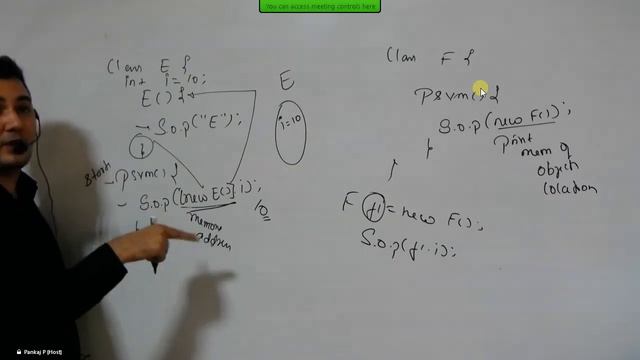 You can access meeting controls here
Class E {
int i=10;
E() {
S.o.p("E");
}
Start
psvm() {
S.o.p((new E()).i);
10
memory
address
E
i=10
Class F {
psvm() {
S.o.p(new F());
print
mem of
object
location
}
F f1 = new F();
S.o.p(f1.i);
Pankaj P [Host]